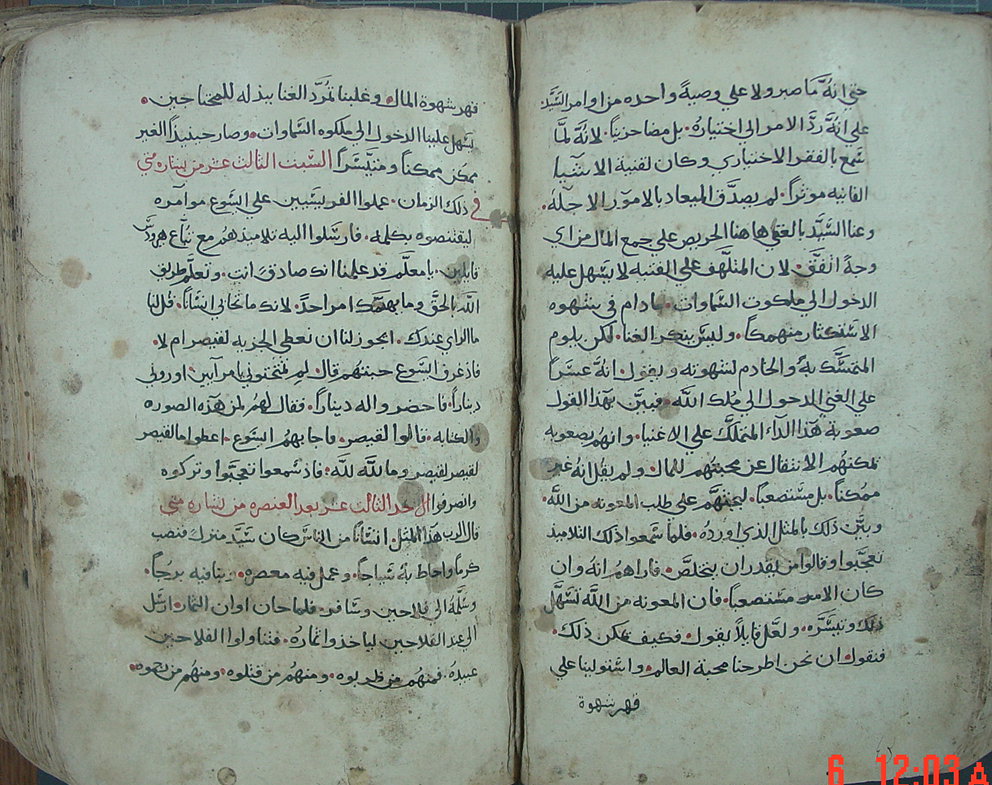 حتى انهُ ما صبر ولا علي وصيةً واحده من اوامر السيّد
علي انهُ ردَّ الامر الى اختياره. بل مضا حزيناً. لانهُ لمَّا
سمع بالفقر الاختياري وكان لقنية الاشيا
الفانيه موثراً. لم يصدّق الميعاد بالامور الاجله.
وعنا السيّد بالغني هاهنا الحريص علي جمع المال من اي
وجهً اتفق. لان المتلهف علي القنيه لا يسهل عليه
الدخول الي ملكوت السماوات. مادام في شهوه
الاستكثار منهمكاً. وليس ينكر الغنا. لكن يلوم
المتمسّك بهُ والخادم لشهوته ويقول. انهُ عسراً
علي الغني الدخول الى ملك اللّه. فبيّن بهذا القول
صعوبة هذا الدآء المتملّك علي الاغنيا. وانهم بصعوبه
يمكنهم الانتقال عن محبتهم للمال. ولم يقل انه غير
ممكناً. بل مستصعباً. ليحثهم علي طلب المعونه من اللّه.
وبيَّن ذلك بالمثل الذي اورده. فلما سمعوا ذلك التلاميذ
تعجّبوا وقالوا من يقدر ان يتخلّص. فاراهم انه وان
كان الامر مستصعباً. فان المعونه من اللّه تسهّل
ذلك وتيسّره. ولعّل قايلاً يقول. فكيف يمكن ذلك.
فنقول ان نحن اطرحنا محبة العالم. واستولينا علي
قهر شهوة
قهر شهوة المال. وغلبنا تمرّد الغنا ببذله للمحتاجين.
يسهل علينا الدخول الي ملكوه السماوات. وصار حينيذاً الغير
ممكن ممكناً ومتيسّراً السبت الثالث عشر من لبشاره متي
في ذلك الزمان. عملوا الفريسيين علي ايسوع موامره
ليقتنصوه بكلمه. فارسلوا اليه تلاميذهم مع تبّاع هرودس
قايلين. يا معلّم قد علمنا انك صادقً انت. وتعلّم طريق
اللّه بالحقّ وما يهمّك امر احداً. لانك ما تحابي انساناً. فقل لنا
ما الراي عندك. ايجوز لنا ان نعطي الجزيه لقيصر ام لا.
فاذ عرف ايسوع خبثهم قال. لم تمتحنوني يا مرآيين. اوروني
ديناراً. فاحضرو اله ديناراً. فقال لهم لمن هذه الصوره
والكتابه. قالوا لقيصر. فاجابهم ايسوع. اعطوا ما لقيصر
لقيصر لقيصر وما للّه للّه. فاذ سمعوا تعجّبوا وتركوه
وانصرفوا الاحد الثالث عشر بعد العنصره من لبشاره متي
قال الرب هذا المثل. انساناً من الناس كان سيّد منزل فنصب
كرماً واحاط بهُ سياجاً. وعمل فيه معصره. وبنا فيه برجاً.
وسلّمهُ الي فلاحين وسافر. فلما حان اوان الثمار. ارسل
الى عند الفلاحين لياخذوا ثماره. فتناولوا الفلاحين
عبيده. فمنهم من ضربوه. ومنهم من قتلوه. ومنهم من رجموه.
6 12:03